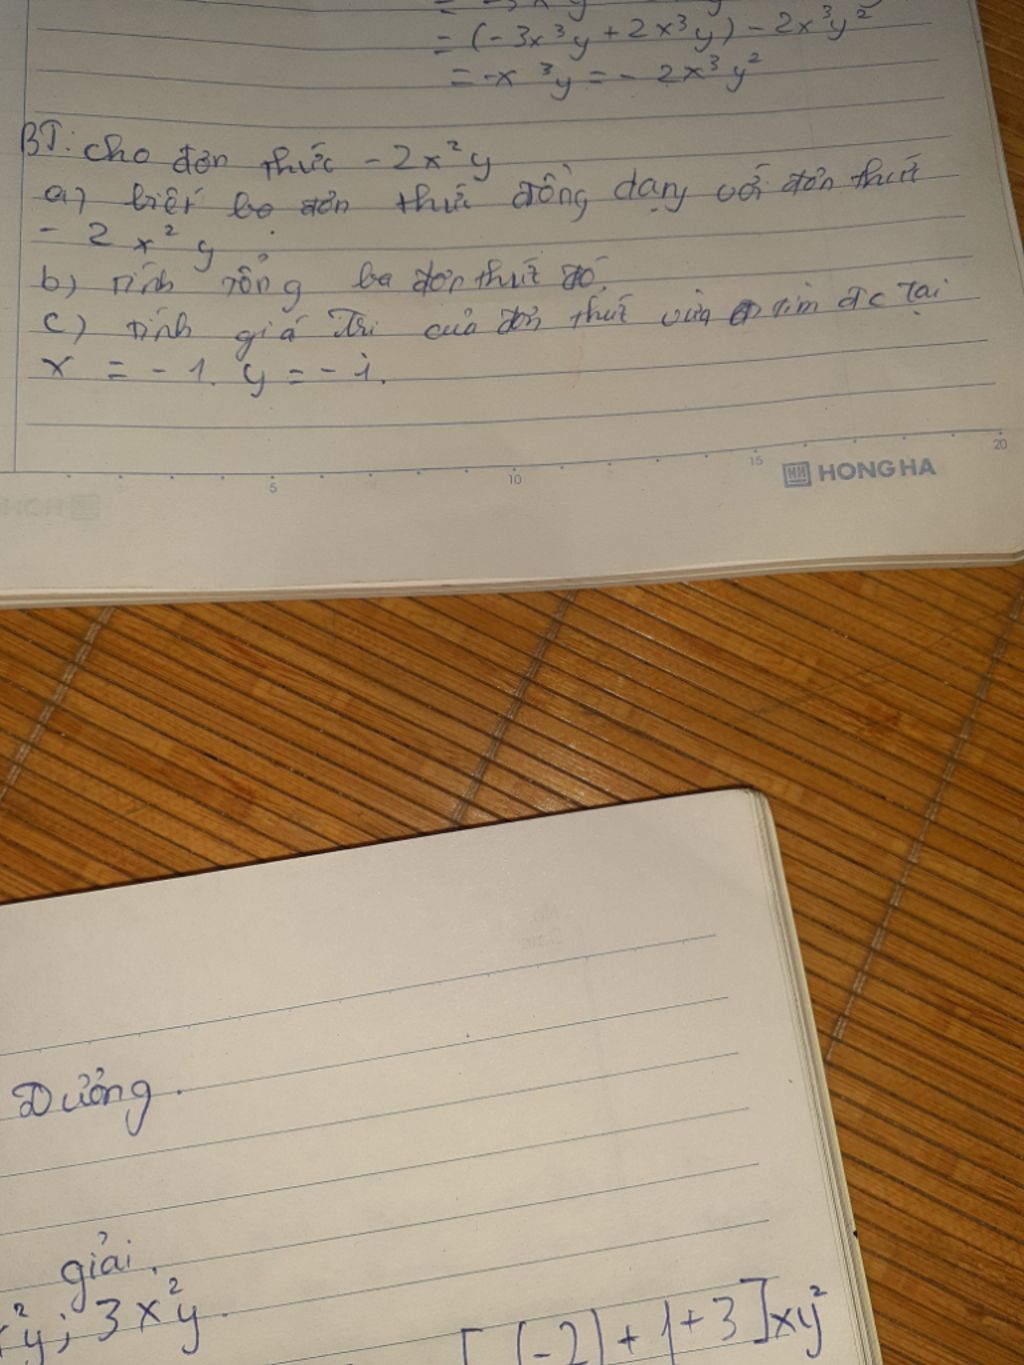 = (-3x³y + 2x³y) - 2x³y²
= -x³y = - 2x³y²
BT: cho đơn thức - 2x²y
a) biết ba đơn thức đồng dạng với đơn thức
- 2x²y
b) tính tổng ba đơn thức đó.
c) tính giá trị của đơn thức vừa tìm đc tại
x = -1. y = -1.
5 10 15 20
HONG HA
Dưởng.
giải.
²y; 3x²y
[(-2) + 1 + 3]xy²